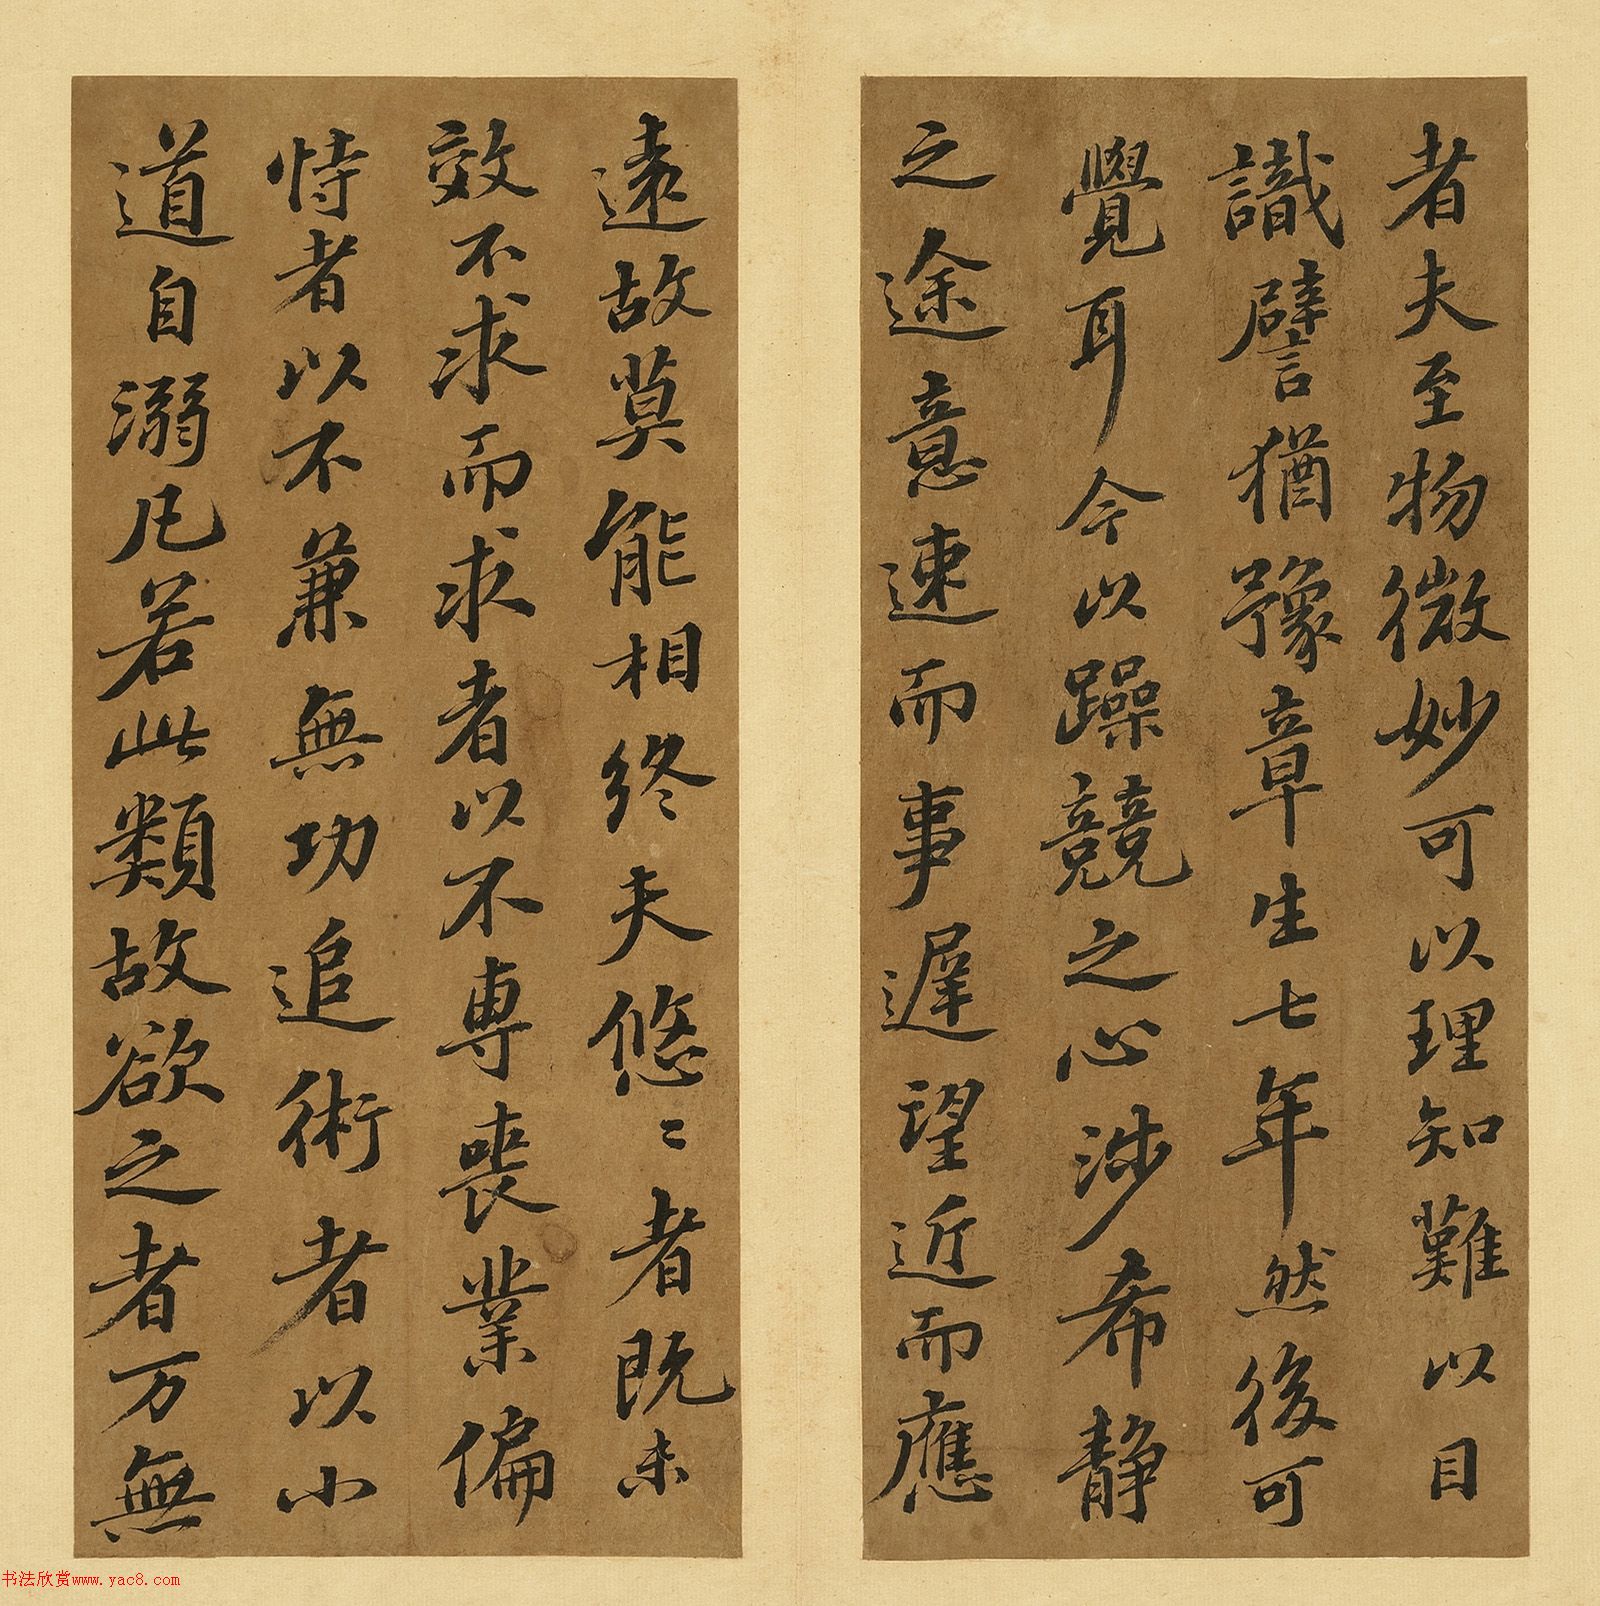 者夫至物微妙可以理知難以目
識譬猶豫章生七年然後可
覺耳今以躁競之心涉希静
之途意速而事遅望近而應
遠故莫能相終夫悠〻者既未
效不求而求者以不專喪業偏
恃者以不兼無功追術者以小
道自溺凡若此類故欲之者万無
书法欣赏www.yac8.com